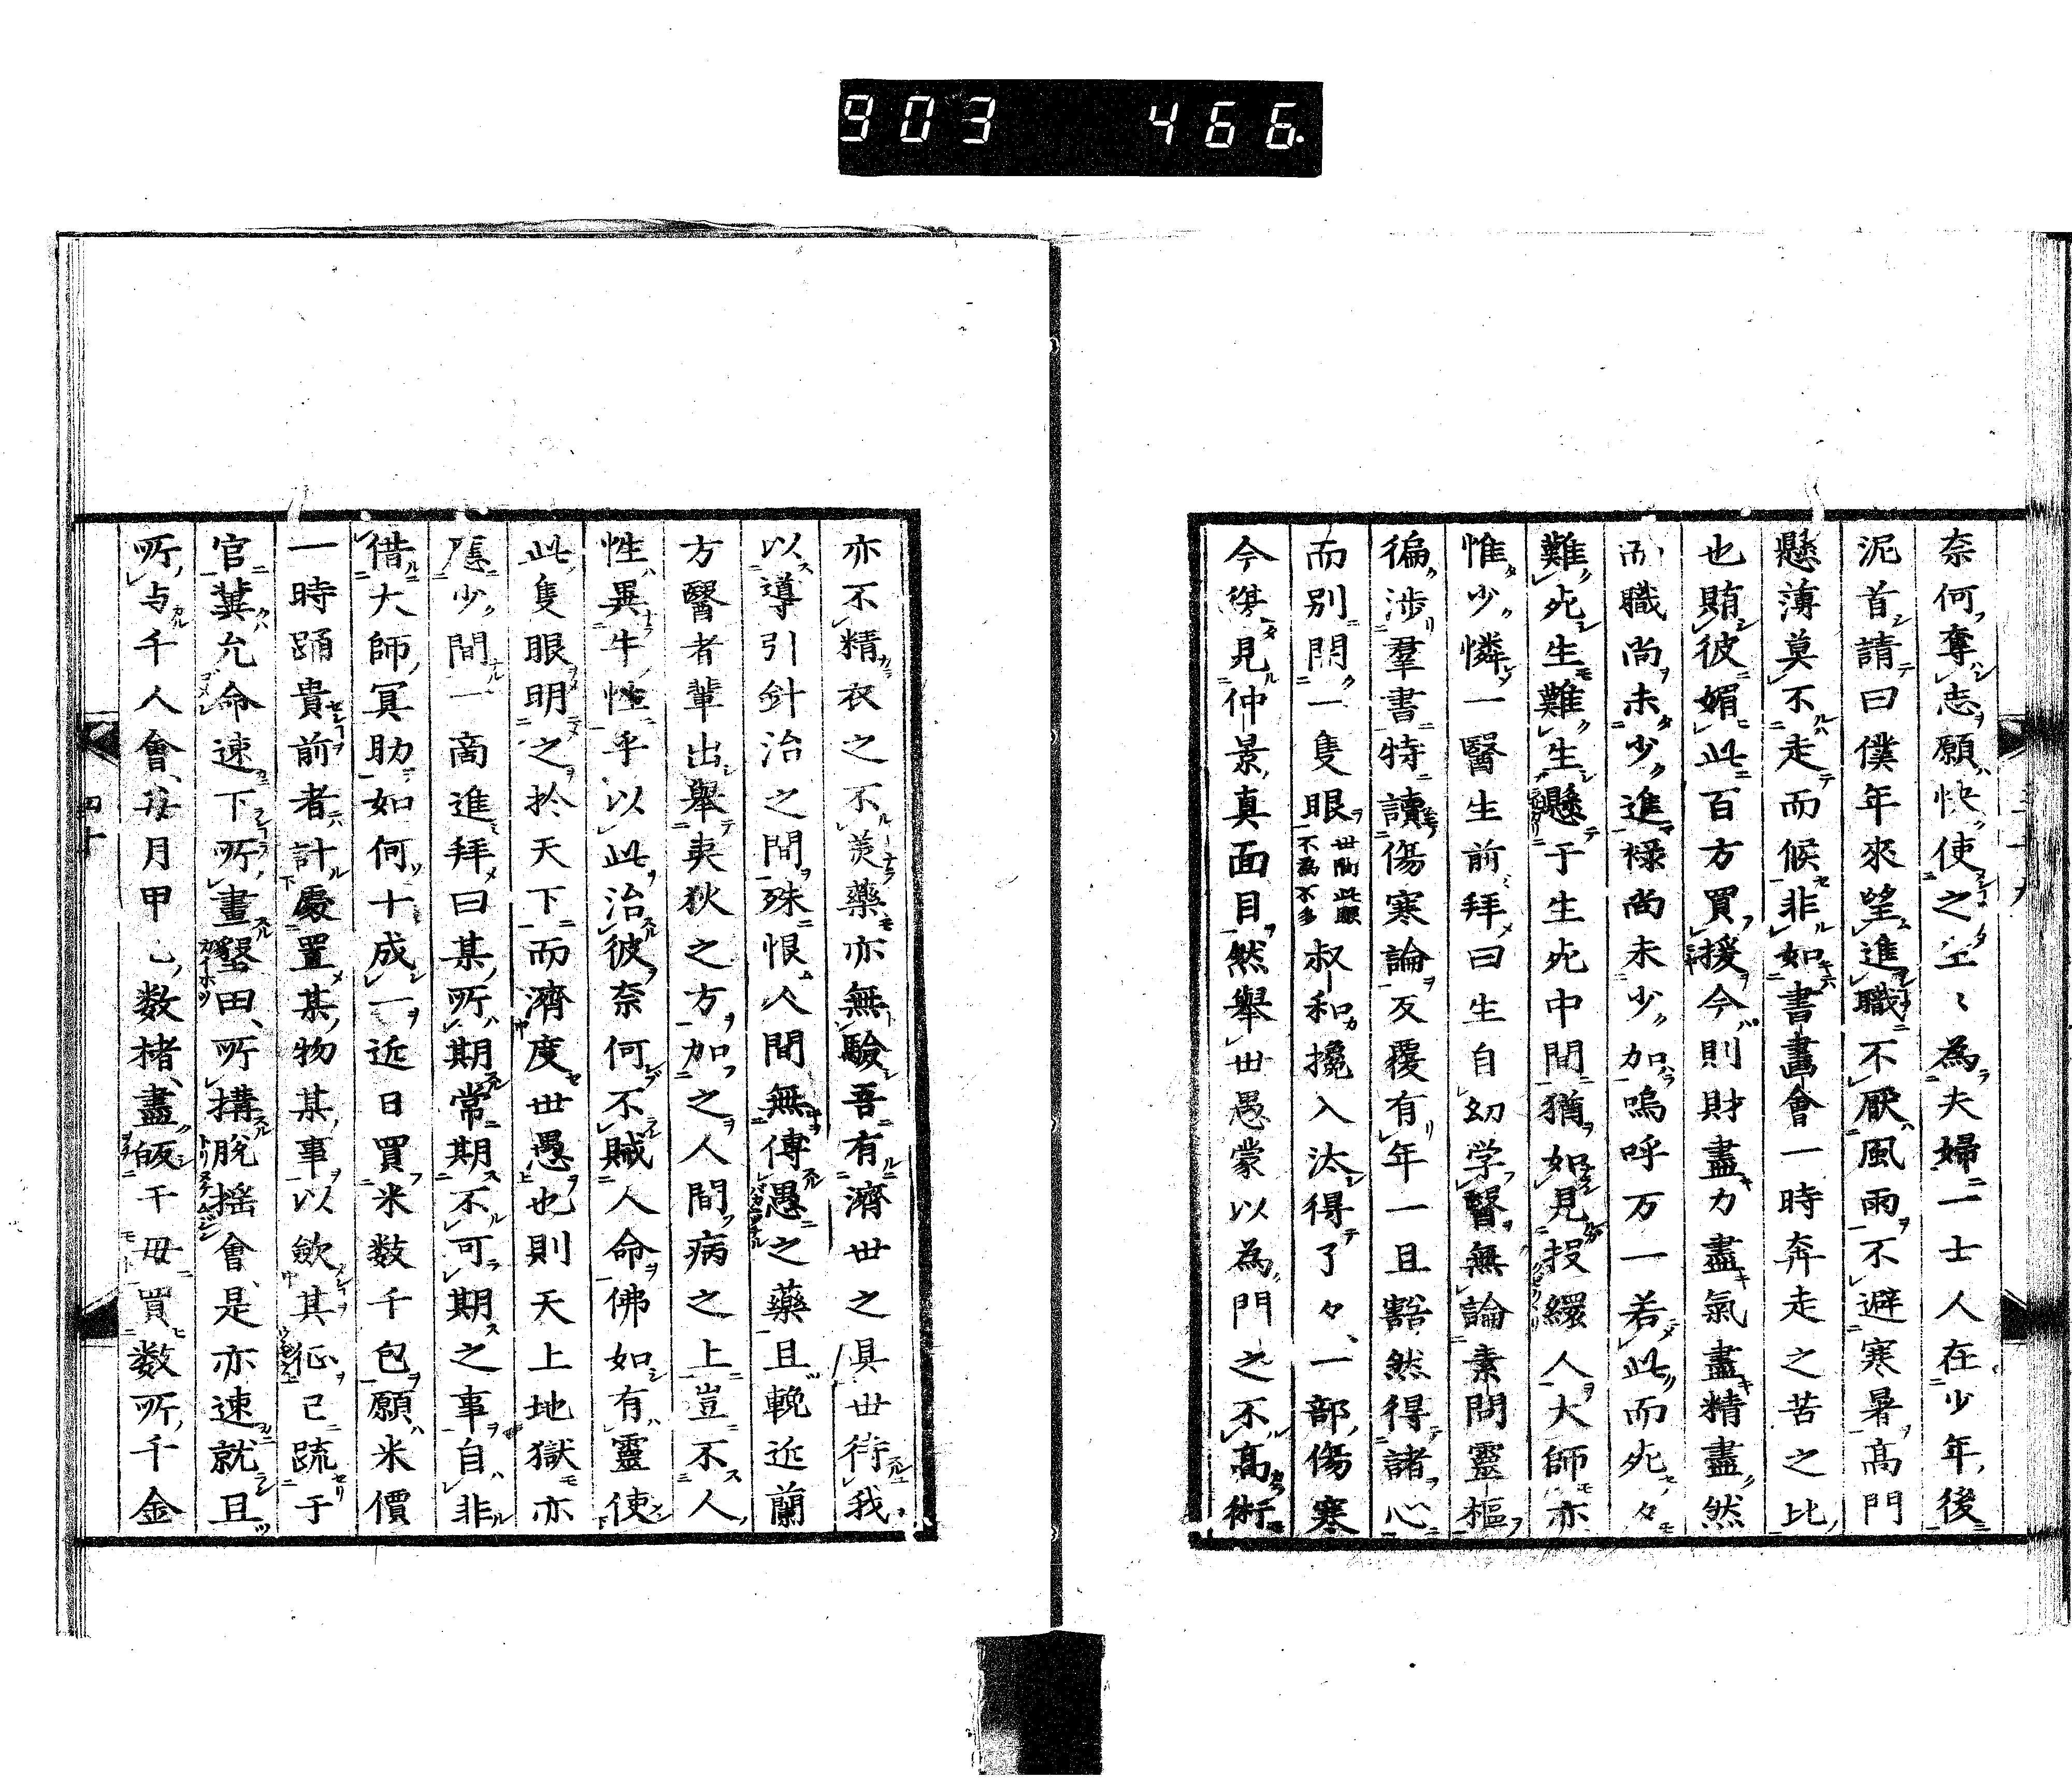 903 466
奈何奪志願快使之立〻為夫婦一士人在少年後
泥首請曰僕年來望進職不厭風雨不避寒暑高門
懸薄莫不走而候非如書畫會一時奔走之苦之比
也賄彼媚此百方買援今則財盡力盡氣盡精盡然
而職尚未少進祿尚未少加嗚呼万一若此而死々
難死生難生懸于生死中間猶如見投繯人大師亦
惟少憐一醫生前拜曰生自幼学醫無論素問靈樞
徧渉羣書特讀傷寒論反覆有年一旦豁然得諸心
而別開一隻眼世間此眼不為不多叔和攙入汰得了々一部傷寒
今保見仲景真面目然舉世愚蒙以為門之不高術
亦不精衣之不羙藥亦無驗吾有濟世之具世待我
以導引針治之間殊恨人間無傳愚之藥且輓近蘭
方醫者輩出舉夷狄之方加之人間病之上豈不人
性異牛性乎以此治彼奈何不賊人命佛如有靈使
此隻眼明之於天下而濟度世愚也則天上地獄亦
應少間一商進拜曰某所期常期不可期之事自非
借大師冥助如何十成一近日買米数千包願米價
一時踊貴前者計處置某物某事以歛其征已疏于
官冀允命速下所畫墾田所搆脫搖會是亦速就且
所与千人會每月甲乙数楮盡皈千毋買数所千金
四十